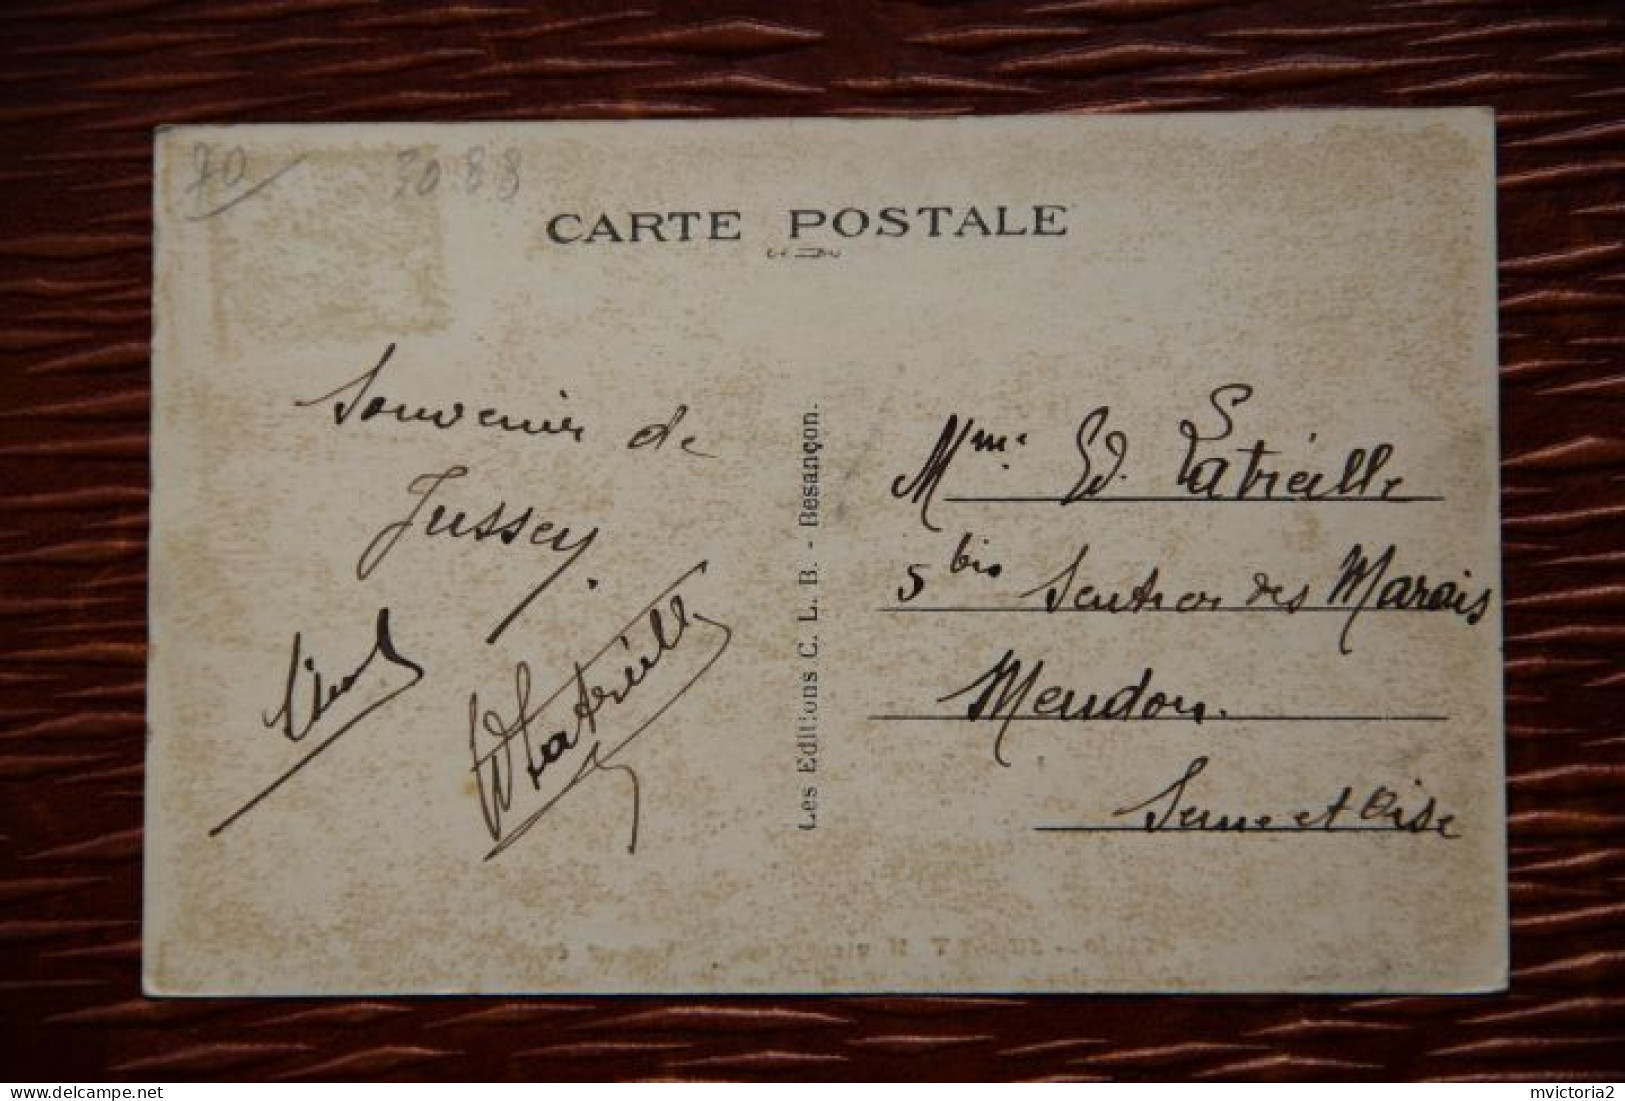 70
3088
CARTE POSTALE
Souvenir de
Jussey.
Latreille
Les Editions C. L. B. - Besançon.
Mme Ed. Latreille
5 bis Sentier des Marais
Meudon.
Seine et Oise
mvictoria2